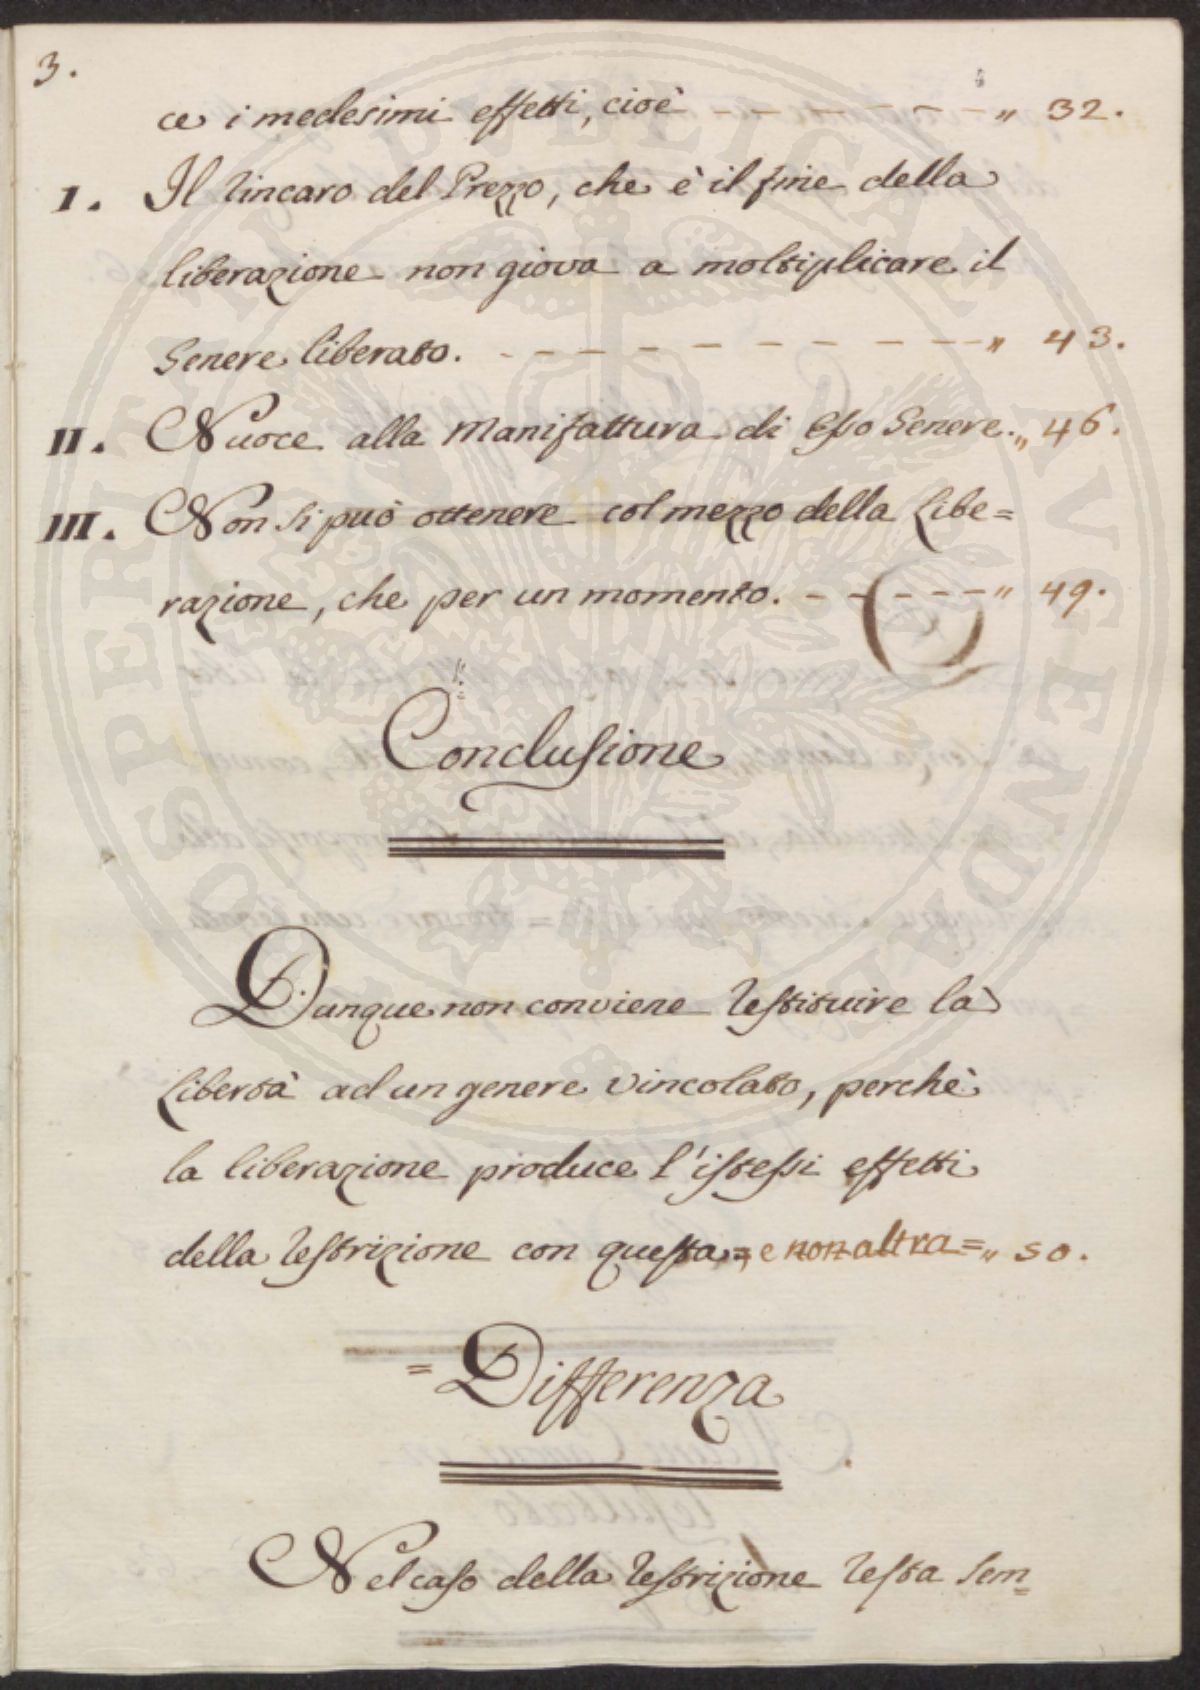 3.
ce i medesimi effetti, cioè - - - - - - - - - - „ 32.
I. Il rincaro del Prezzo, che è il fine della
liberazione non giova a moltiplicare il
Genere liberato. - - - - - - - - - - - „ 43.
II. Nuoce alla Manifattura di Esso Genere. „ 46.
III. Non si può ottenere col mezzo della Libe=
razione, che per un momento. - - - - - - „ 49.
Conclusione
Dunque non conviene restituire la
Libertà ad un genere vincolato, perchè
la liberazione produce l'istessi effetti
della restrizione con questa = e non altra = „ 50.
= Differenza
Nel caso della restrizione resta sem=
PROSPERITATI PVBLICAE AVGENDAE